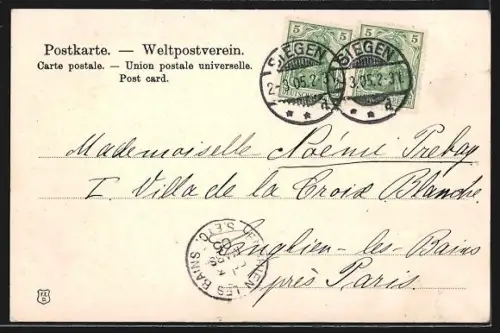 Postkarte. — Weltpostverein.
Carte postale. — Union postale universelle.
Post card.
5 5 5 5
SIEGEN SIEGEN
Mademoiselle Noémie Trebay
I. Villa de la Croix Blanche
Enghien-les-Bains
près Paris.
LES BAINS S.ETO.